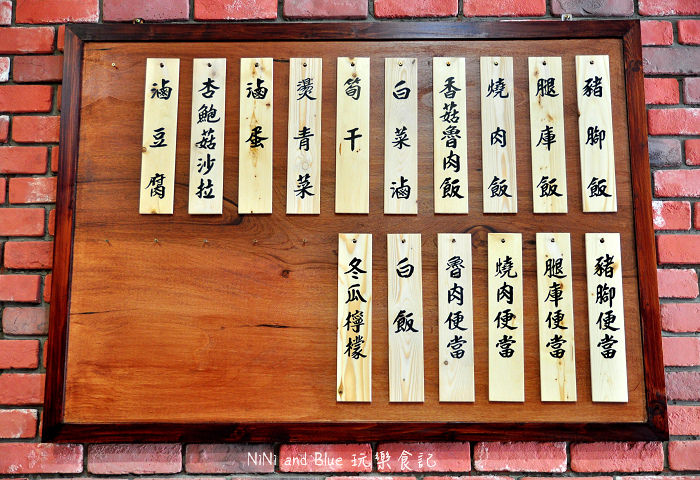 豬腳飯
腿庫飯
燒肉飯
香菇魯肉飯
白菜滷
筍干
燙青菜
滷蛋
杏鮑菇沙拉
滷豆腐
豬腳便當
腿庫便當
燒肉便當
魯肉便當
白飯
冬瓜檸檬
NiNi and Blue 玩樂食記